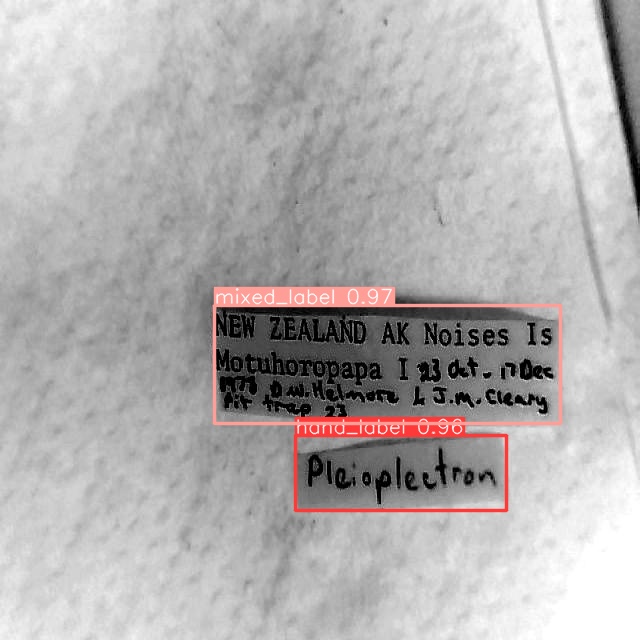 mixed_label 0.97
NEW ZEALAND AK Noises Is
Motuhoropapa I 23 Oct - 17 Dec
D.W. Helmore & J.M. Cleary
Pit trap 23
hand_label 0.96
Pleioplectron